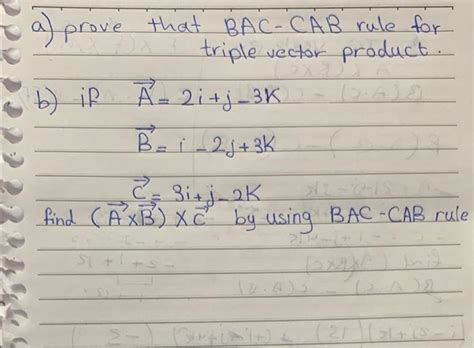 a) prove that BAC-CAB rule for
triple vector product.
b) if A⃗ = 2i+j-3K
B⃗ = i-2j+3K
C⃗ = 3i+j-2K
find (A⃗×B⃗)×C⃗ by using BAC-CAB rule